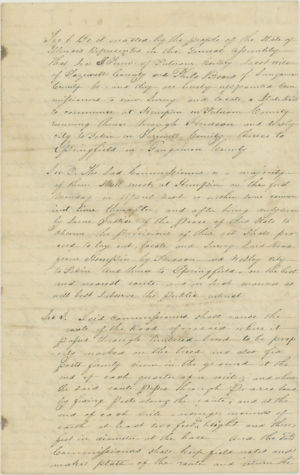 Sec 1. Be it enacted by the people of the State of
Illinois Represented in the General Assembly
That of Putnam County
of Tazewell County and Philo Beard of Sangamon
County be and they are hereby appointed Com
missioners to view Survey and locate a State Road
to commence at Hennepin in Putnam County
running thence through Henderson and Wesley
city to Pekin in Tazewell County thence to
Springfield in Sangamon County
Sec 2. The Said Commissioners or a majority
of them Shall meet at Hennepin on the first
Monday in April next or within two
thereafter and after being duly sworn
by Some Justice of the Peace of this State to
observe the provisions of this act Shall pro
ceed to lay out, locate and Survey Said Road
from Hennepin by Henderson and Wesley city
to Pekin and thence to Springfield on the best
and nearest route and in such manner as
will best Subserve the public interest
Sec 3. Said Commissioners shall cause the
route of the Road aforesaid where it
passes through timbered land to be prop
erly marked on the trees and also fix
posts firmly down in the ground at the
end of each and also
the Said route passes through Prairie land
by fixing posts along the route, and at the
end of each mile mounds of
earth at least two feet hight and three
feet in diameter at the base. And the Said
Commissioners shall keep field notes and
make plats of the route and return the